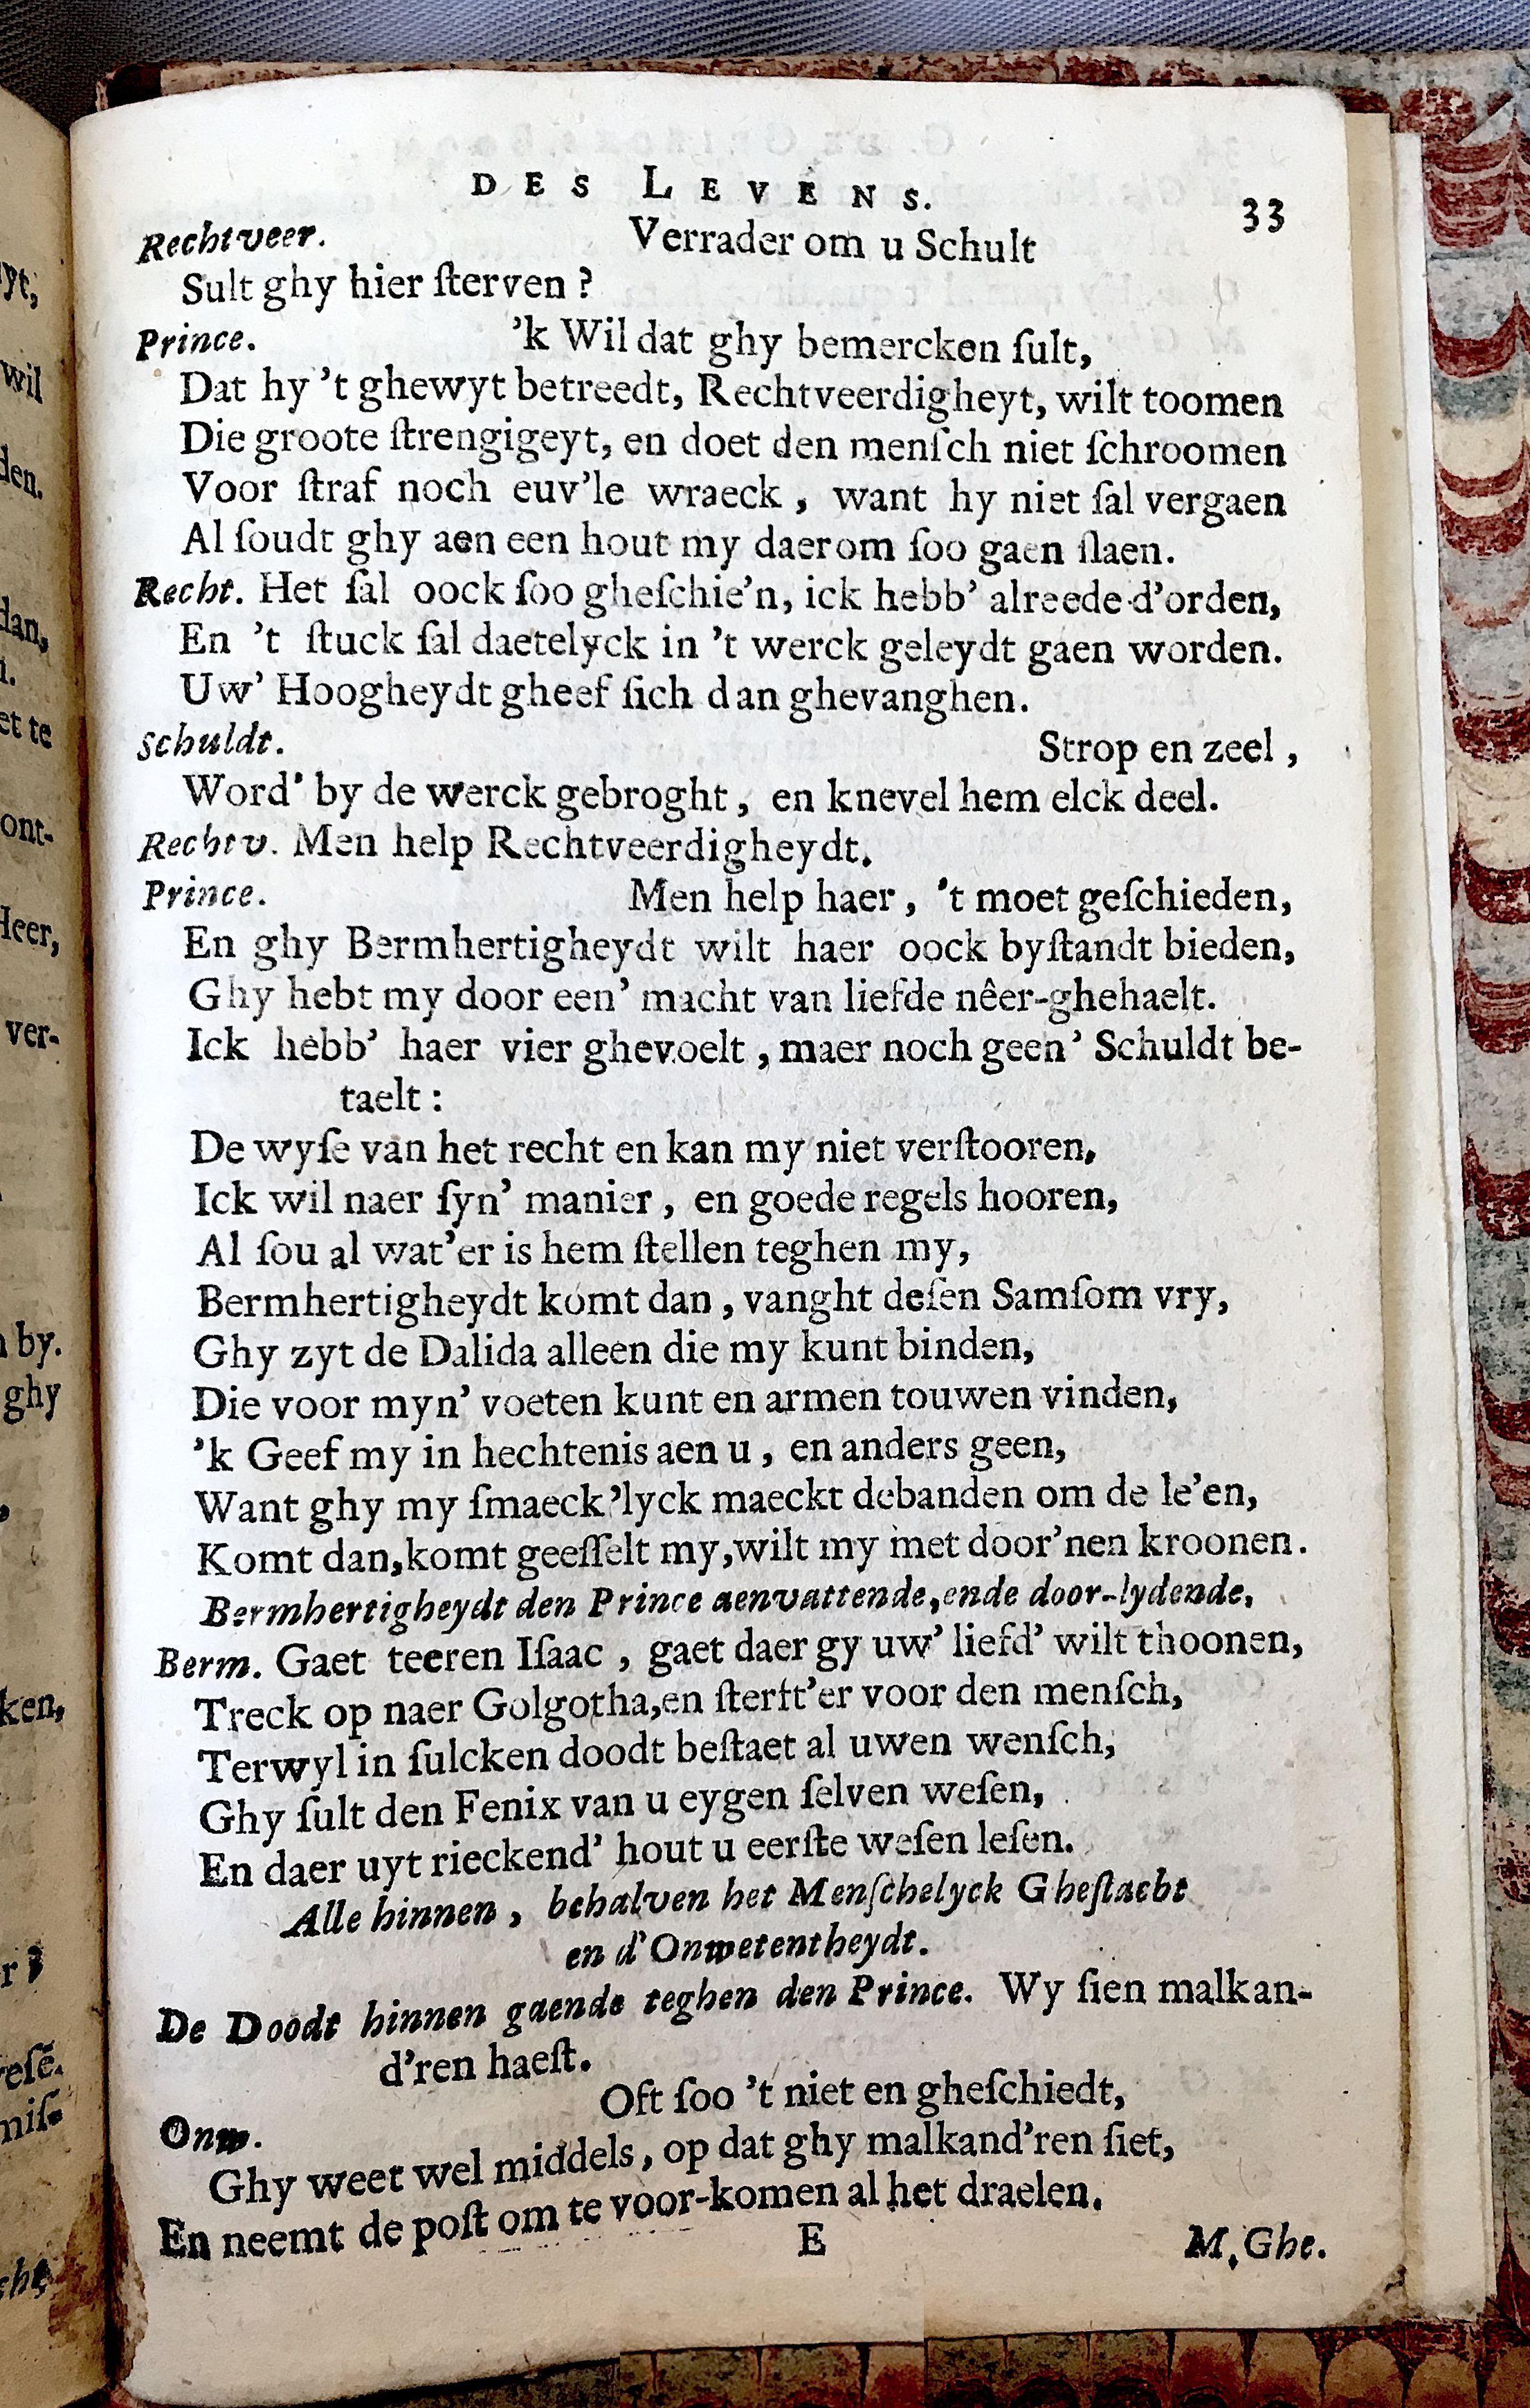 DES LEVENS. 33
Rechtveer. Verrader om u Schult
Sult ghy hier ſterven ?
Prince. 'k Wil dat ghy bemercken ſult,
Dat hy 't ghewyt betreedt, Rechtveerdigheyt, wilt toomen
Die groote ſtrengigeyt, en doet den menſch niet ſchroomen
Voor ſtraf noch euv'le wraeck , want hy niet ſal vergaen
Al ſoudt ghy aen een hout my daerom ſoo gaen ſlaen.
Recht. Het ſal oock ſoo gheſchie'n, ick hebb' alreede d'orden,
En 't ſtuck ſal daetelyck in 't werck geleydt gaen worden.
Uw' Hoogheydt gheef ſich dan ghevanghen.
Schuldt. Strop en zeel ,
Word' by de werck gebroght , en knevel hem elck deel.
Rechtv. Men help Rechtveerdigheydt.
Prince. Men help haer , 't moet geſchieden,
En ghy Bermhertigheydt wilt haer oock byſtandt bieden,
Ghy hebt my door een' macht van liefde nêer-ghehaelt.
Ick hebb' haer vier ghevoelt , maer noch geen' Schuldt be-
taelt :
De wyſe van het recht en kan my niet verſtooren,
Ick wil naer ſyn' manier , en goede regels hooren,
Al ſou al wat'er is hem ſtellen teghen my,
Bermhertigheydt komt dan , vanght deſen Samſom vry,
Ghy zyt de Dalida alleen die my kunt binden,
Die voor myn' voeten kunt en armen touwen vinden,
'k Geef my in hechtenis aen u , en anders geen,
Want ghy my ſmaeck'lyck maeckt de banden om de le'en,
Komt dan, komt geeſſelt my, wilt my met door'nen kroonen.
Bermhertigheydt den Prince aenvattende, ende door-lydende,
Berm. Gaet teeren Iſaac , gaet daer gy uw' liefd' wilt thoonen,
Treck op naer Golgotha, en ſterft'er voor den menſch,
Terwyl in ſulcken doodt beſtaet al uwen wenſch,
Ghy ſult den Fenix van u eygen ſelven weſen,
En daer uyt rieckend' hout u eerſte weſen leſen.
Alle binnen , behalven het Menſchelyck Gheſlacht
en d'Onwetentheydt.
De Doodt binnen gaende teghen den Prince. Wy ſien malkan-
d'ren haeſt.
Onw. Oft ſoo 't niet en gheſchiedt,
Ghy weet wel middels, op dat ghy malkand'ren ſiet,
En neemt de poſt om te voor-komen al het draelen.
E M. Ghe.